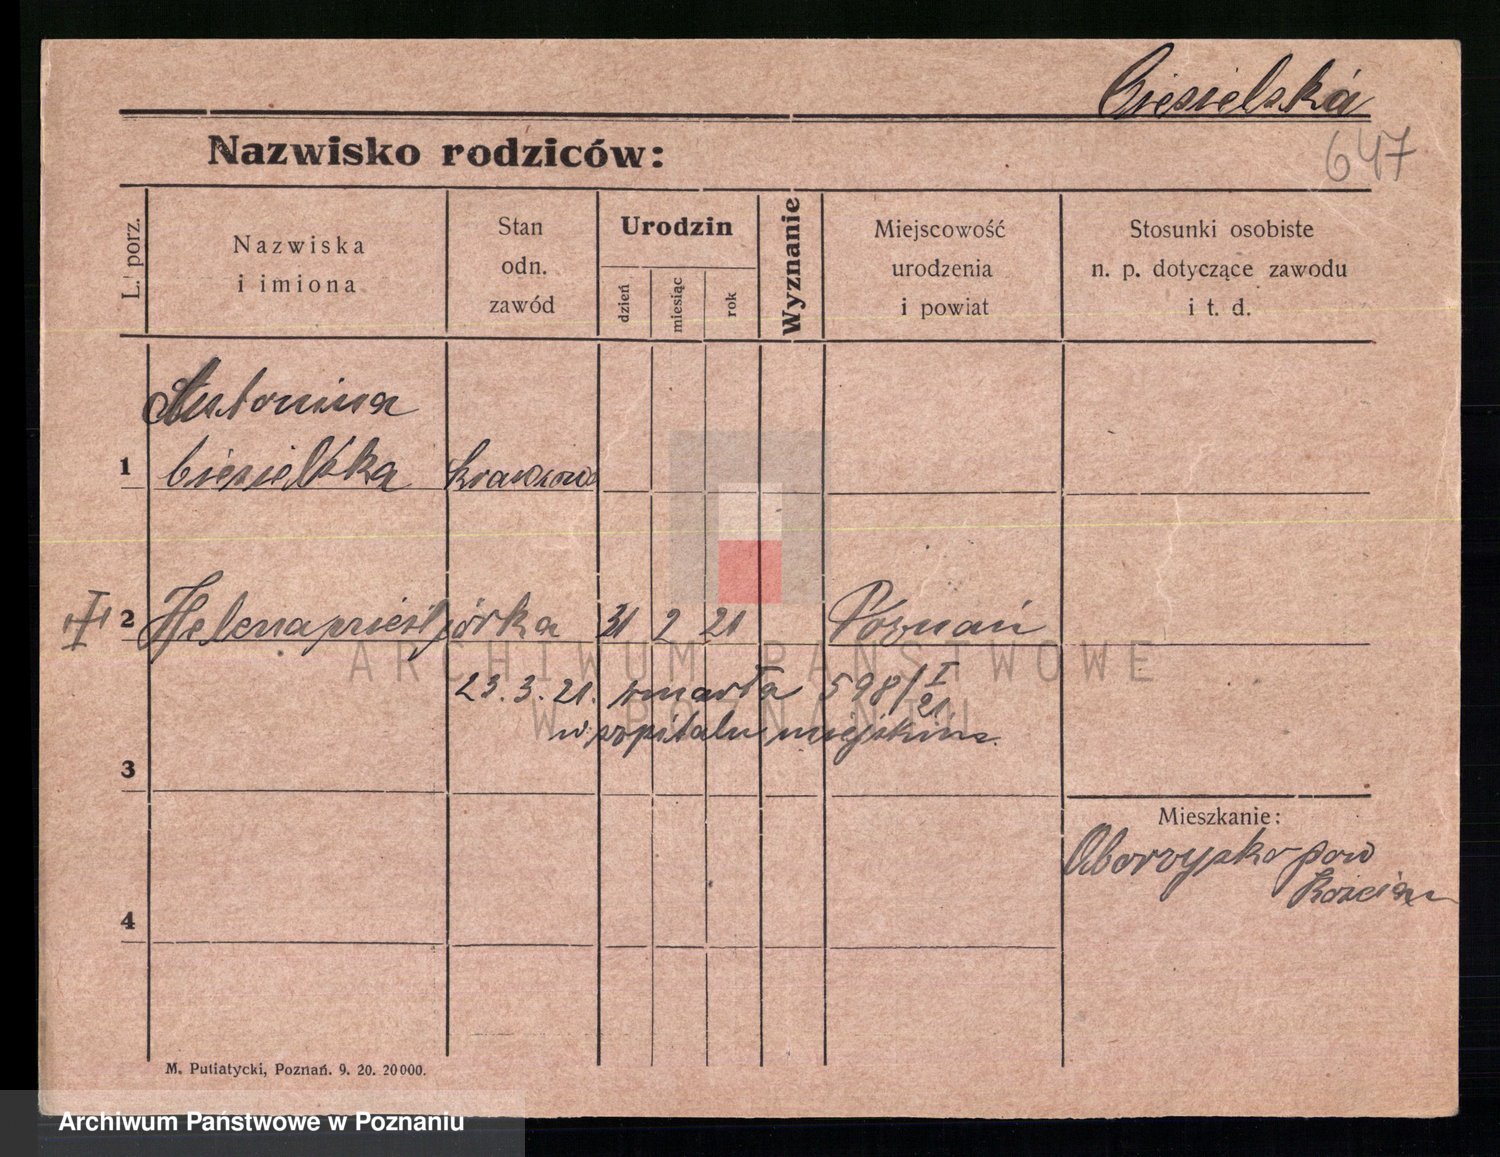 Ciesielská
647
Nazwisko rodziców:
L. porz.
Nazwiska
i imiona
Stan
odn.
zawód
Urodzin
dzień
miesiąc
rok
Wyznanie
Miejscowość
urodzenia
i powiat
Stosunki osobiste
n. p. dotyczące zawodu
i t. d.
Antonina
1 Ciesielska krawcowa
2 Helena 31 2 21 Poznań
ARCHIWUM PAŃSTWOWE
23. 3. 21. umarła 598/I 21.
W POZNANIU
w szpitalu miejskim.
3
Mieszkanie:
Oborzysko pow
Kościan
4
M. Putiatycki, Poznań. 9. 20. 20000.
Archiwum Państwowe w Poznaniu